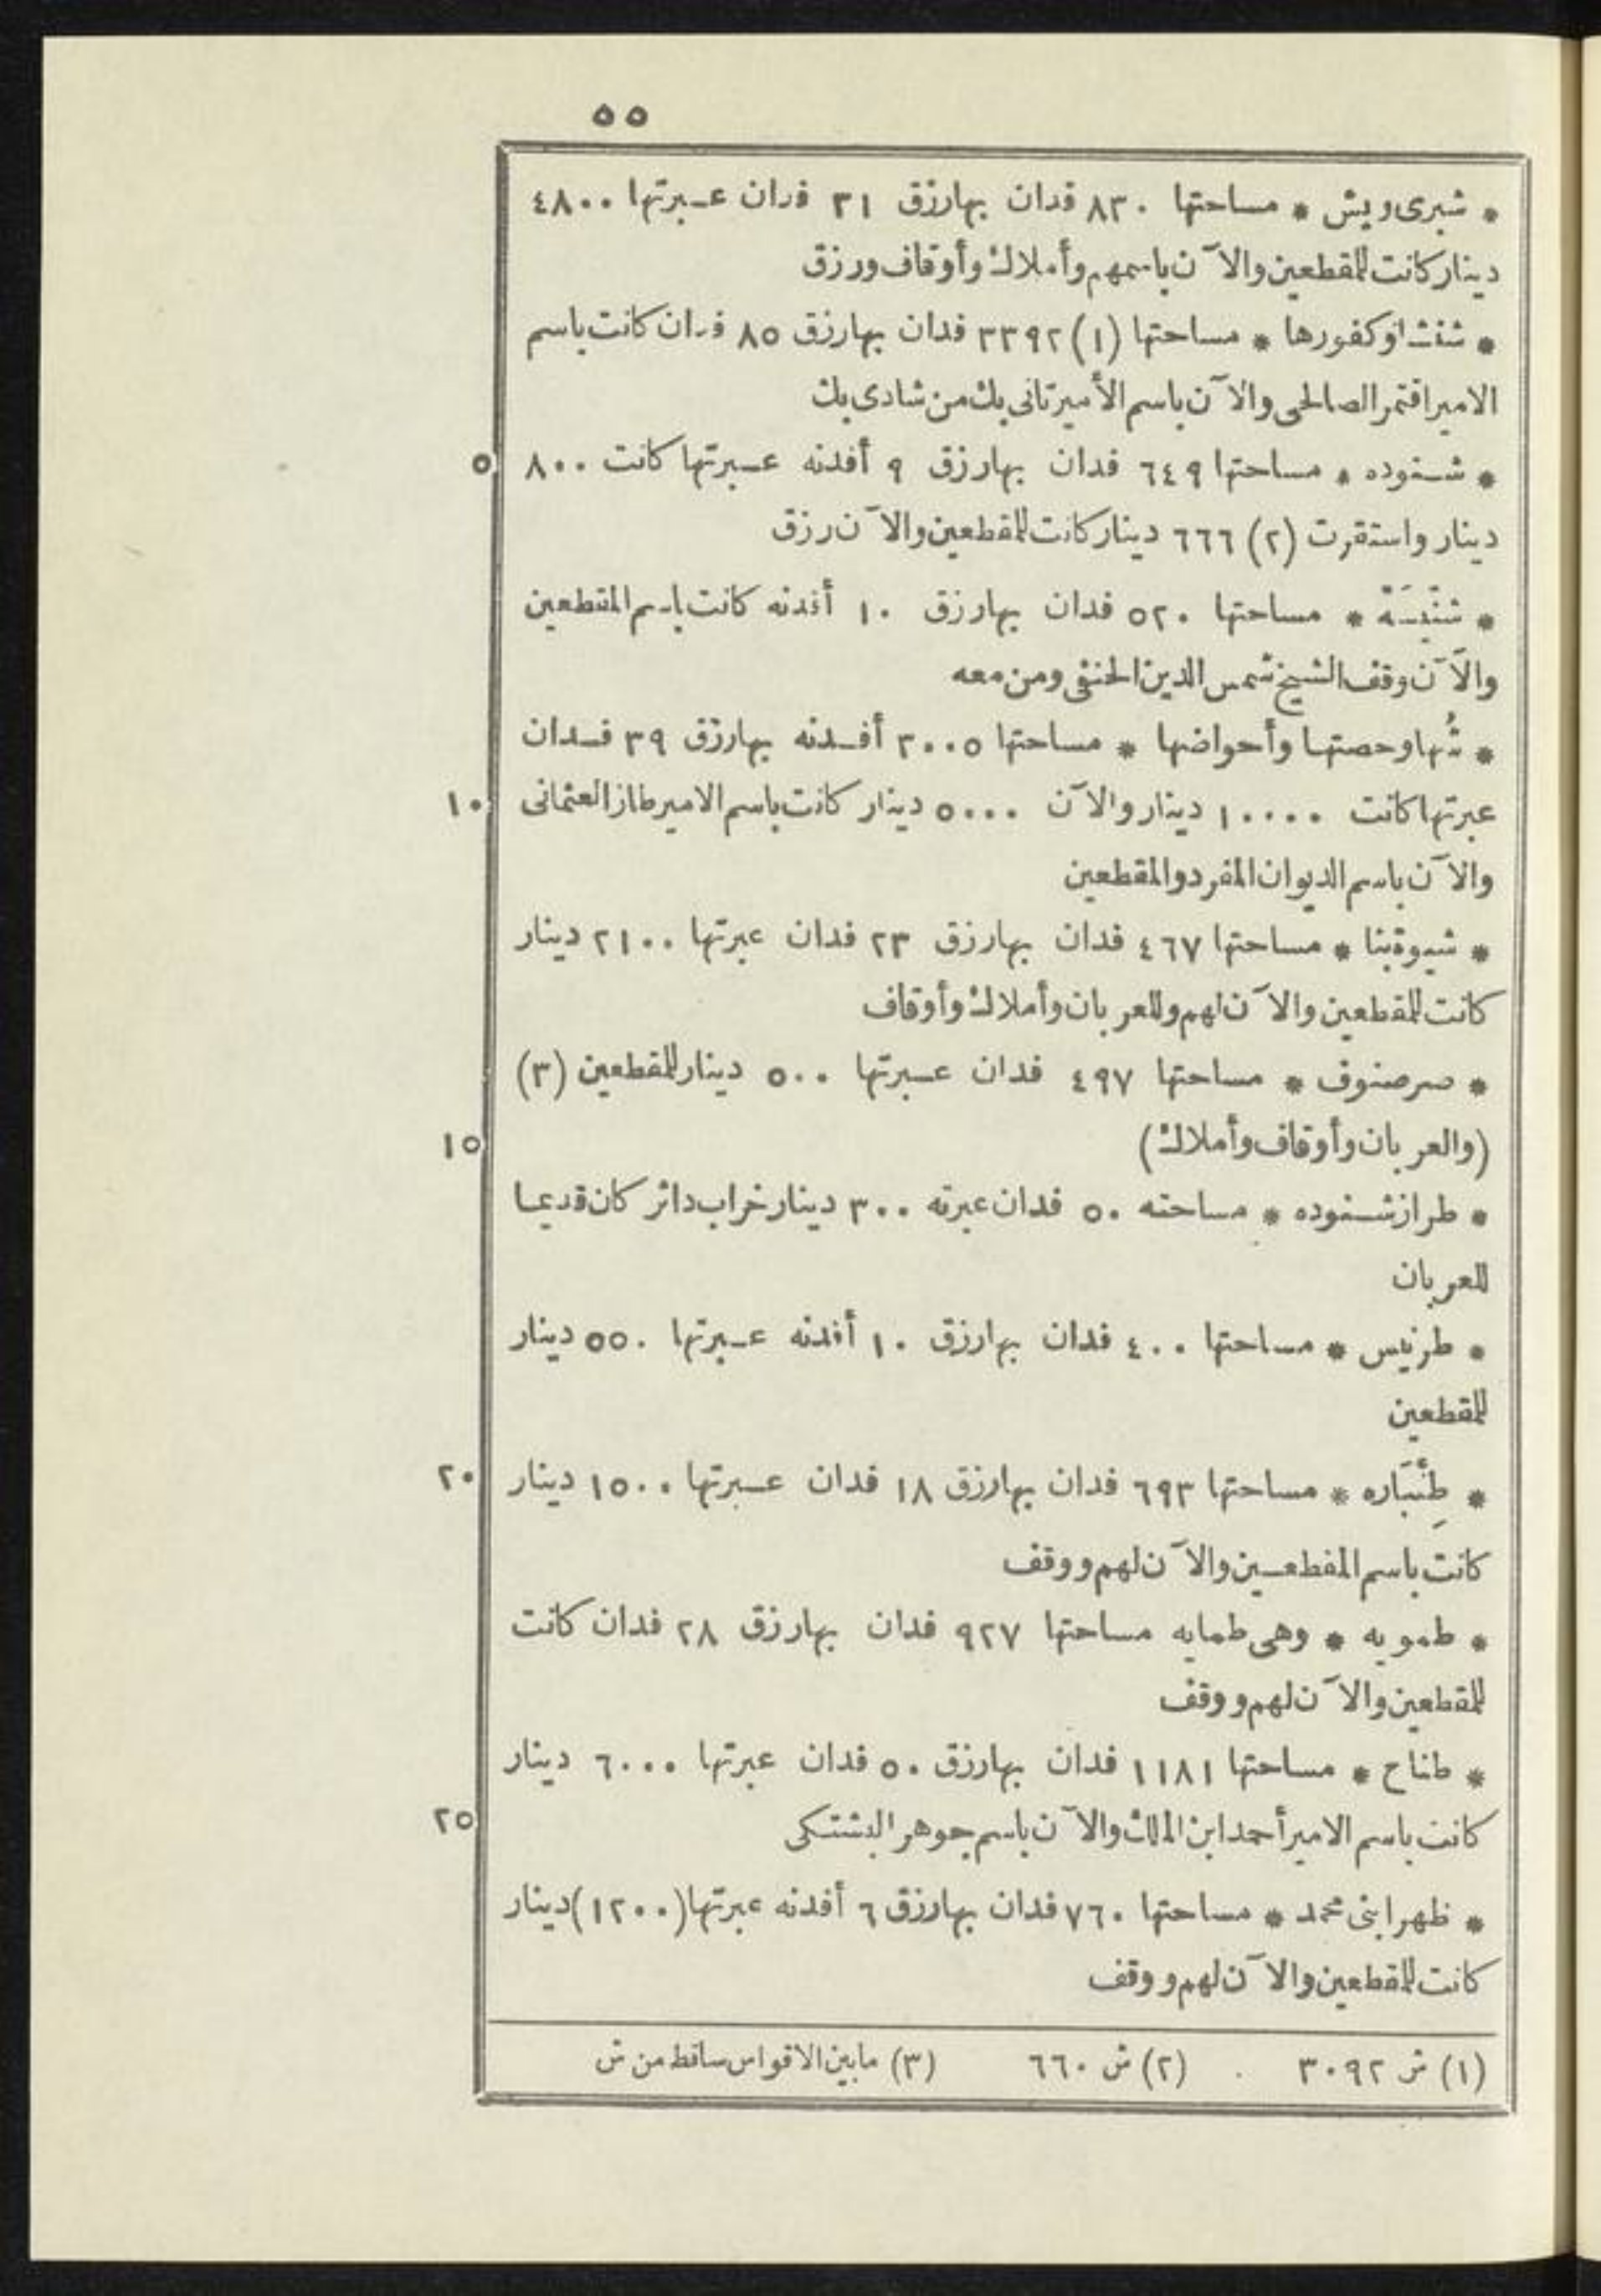 ٥٥
* شبرى ويش * مساحتها ٨٣٠ فدان بها رزق ٣١ فدان عبرتها ٤٨٠٠
دينار كانت للمقطعين والآن باسمهم وأملاك وأوقاف ورزق
* ششتا وكفورها * مساحتها (١) ٣٣٩٢ فدان بها رزق ٨٥ فدان كانت باسم
الامير اقتمر الصالحى والآن باسم الأمير تانى بك من شادى بك
٥ * شنوده * مساحتها ٦٤٩ فدان بها رزق ٩ أفدنه عبرتها كانت ٨٠٠
دينار واستقرت (٢) ٦٦٦ دينار كانت للمقطعين والآن رزق
* شنّيسَة * مساحتها ٥٢٠ فدان بها رزق ١٠ أفدنه كانت باسم المقطعين
والآن وقف الشيخ شمس الدين الحنفى ومن معه
* وحصتها وأحواضها * مساحتها ٣٠٠٥ أفدنه بها رزق ٣٩ فدان
١٠ عبرتها كانت ١٠٠٠٠ دينار والآن ٥٠٠٠ دينار كانت باسم الامير طاز العثمانى
والآن باسم الديوان المفرد والمقطعين
* شيوة بنا * مساحتها ٤٦٧ فدان بها رزق ٢٣ فدان عبرتها ٢١٠٠ دينار
كانت للمقطعين والآن لهم وللعربان وأملاك وأوقاف
* صرصنوف * مساحتها ٤٩٧ فدان عبرتها ٥٠٠ دينار للمقطعين (٣)
١٥ (والعربان وأوقاف وأملاك)
* طراز شنوده * مساحته ٥٠ فدان عبرته ٣٠٠ دينار خراب داثر كان قديما
للعربان
* طرنيس * مساحتها ٤٠٠ فدان بها رزق ١٠ أفدنه عبرتها ٥٥٠ دينار
للمقطعين
٢٠ * طِنْبَاره * مساحتها ٦٩٣ فدان بها رزق ١٨ فدان عبرتها ١٥٠٠ دينار
كانت باسم المقطعين والآن لهم ووقف
* طمويه * وهى طمايه مساحتها ٩٢٧ فدان بها رزق ٢٨ فدان كانت
للمقطعين والآن لهم ووقف
* طناح * مساحتها ١١٨١ فدان بها رزق ٥٠ فدان عبرتها ٦٠٠٠ دينار
٢٥ كانت باسم الامير أحمد ابن الملك والآن باسم جوهر البشتكى
* ظهر ابنى محمد * مساحتها ٧٦٠ فدان بها رزق ٦ أفدنه عبرتها (١٢٠٠) دينار
كانت للمقطعين والآن لهم ووقف
(١) ش ٣٠٩٢ (٢) ش ٦٦٠ (٣) ما بين الاقواس ساقط من ش